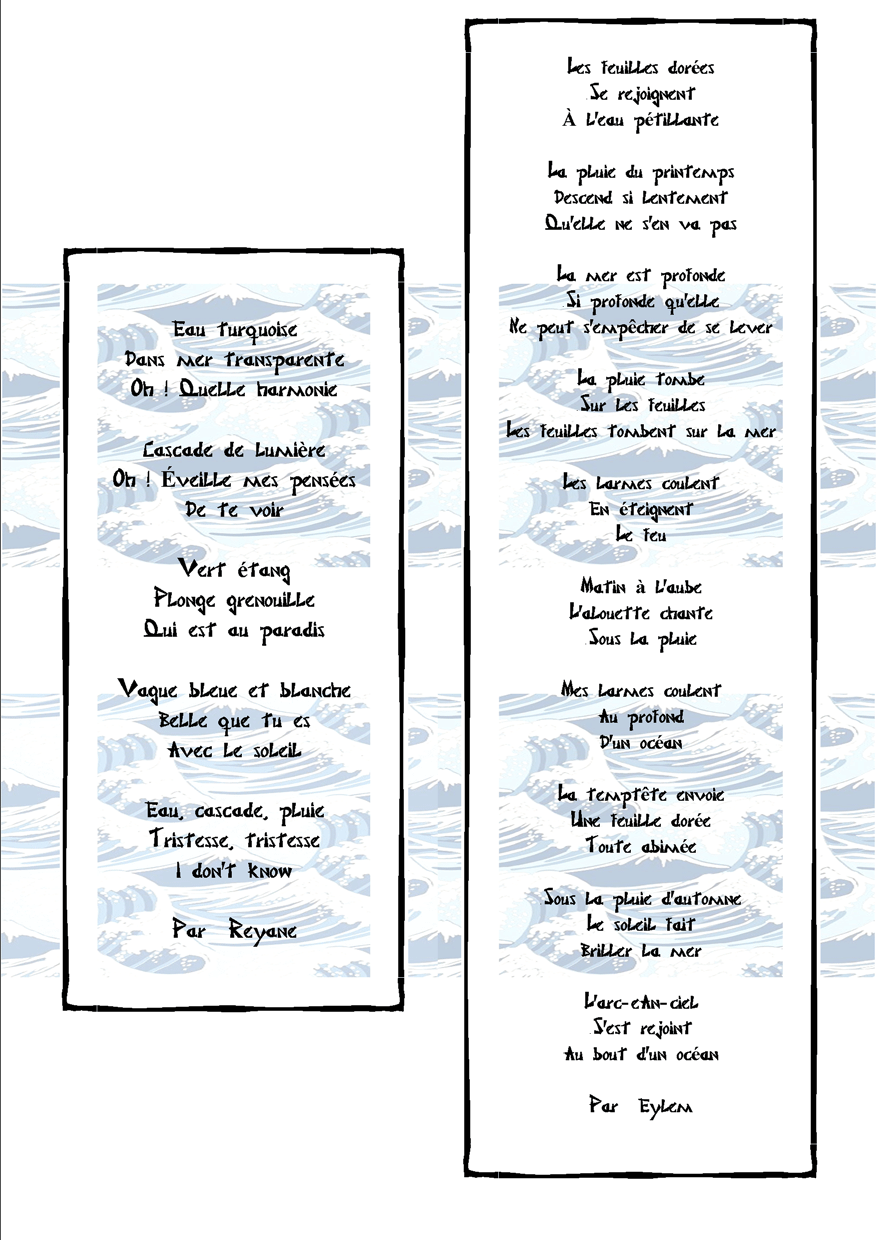 Eau turquoise
Dans mer transparente
Oh ! Quelle harmonie

Cascade de lumière
Oh ! Éveille mes pensées
De te voir

Vert étang
Plonge grenouille
Qui est au paradis

Vague bleue et blanche
Belle que tu es
Avec le soleil

Eau, cascade, pluie
Tristesse, tristesse
I don't know

Par Reyane

Les feuilles dorées
Se rejoignent
À l'eau pétillante

La pluie du printemps
Descend si lentement
Qu'elle ne s'en va pas

La mer est profonde
Si profonde qu'elle
Ne peut s'empêcher de se lever

La pluie tombe
Sur les feuilles
Les feuilles tombent sur la mer

Les larmes coulent
En éteignent
Le feu

Matin à l'aube
L'alouette chante
Sous la pluie

Mes larmes coulent
Au profond
D'un océan

La temptête envoie
Une feuille dorée
Toute abimée

Sous la pluie d'automne
Le soleil fait
Briller la mer

L'arc-eAn-ciel
S'est rejoint
Au bout d'un océan

Par Eylem